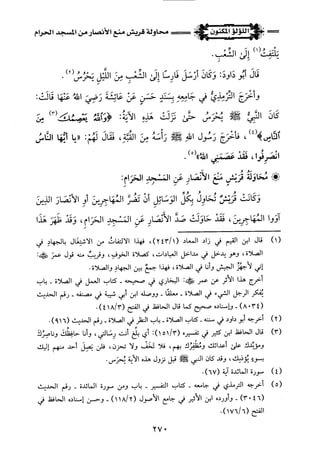 اللؤلؤ المكنون
محاولة قريش منع الأنصار من المسجد الحرام
يَلْتَفِتُ(١) إِلَى الشِّعْبِ.
قَالَ أَبُو دَاوُدَ: وَكَانَ أَرْسَلَ فَارِسًا إِلَى الشِّعْبِ مِنَ اللَّيْلِ يَحْرُسُ(٢).
وأخْرَجَ التِّرْمِذِيُّ فِي جَامِعِهِ بِسَنَدٍ حَسَنٍ عَنْ عَائِشَةَ رَضِيَ اللهُ عَنْهَا قَالَتْ:
كَانَ النَّبِيُّ ﷺ يُحْرَسُ حَتَّى نَزَلَتْ هَذِهِ الآيَةُ: ﴿وَاللَّهُ يَعْصِمُكَ(٣) مِنَ
النَّاسِ﴾(٤)، فَأَخْرَجَ رَسُولُ اللهِ ﷺ رَأْسَهُ مِنَ القُبَّةِ، فَقَالَ لَهُمْ: «يَا أَيُّهَا النَّاسُ
انْصَرِفُوا، فَقَدْ عَصَمَنِي اللهُ»(٥).
* مُحَاوَلَةُ قُرَيْشٍ مَنْعَ الأَنْصَارِ عَنِ المَسْجِدِ الحَرَامِ:
وَكَانَتْ قُرَيْشٌ تُحَاوِلُ بِكُلِّ الوَسَائِلِ أَنْ تَمْنَعَ المُهَاجِرِينَ أَوِ الأَنْصَارَ الذِينَ
آوَوا المُهَاجِرِينَ، فَقَدْ حَاوَلَتْ صَدَّ الأَنْصَارِ عَنِ المَسْجِدِ الحَرَامِ، وَقَدْ ظَهَرَ هَذَا
(١) قال ابن القيم في زاد المعاد (٢٤٣/١): فهذا الالتفاتُ من الاشتِغَالِ بالجهادِ في
الصلاة، وهو يدخل في مداخل العبادات، كصلاة الخوف، وقريبٌ منه قول عمر ﵁:
إني لأجهزُ الجيش وأنا في الصلاة، فهذا جمعٌ بين الجهاد والصلاة.
أخرج هذا الأثر عن عمر ﵁: البخاري في صحيحه ـ كتاب العمل في الصلاة ـ باب
يُفكر الرجل الشيء في الصلاة ـ معلقًا ـ ووصله ابن أبي شيبة في مصنفه ـ رقم الحديث
(٨٠٣٤) ـ وإسناده صحيح كما قال الحافظ في الفتح (٤١٨/٣).
(٢) أخرجه أبو داود في سننه ـ كتاب الصلاة ـ باب النظر في الصلاة ـ رقم الحديث (٩١٦).
(٣) قال الحافظ ابن كثير في تفسيره (١٥١/٣): أي بلّغ أنت رِسَالتي، وأنا حافِظُكَ وناصِرُكَ
ومؤيدُك على أعدائك ومُظفِرُك بهم، فلا تخَفْ ولا تحزن، فلن يَصِلَ أحد منهم إليك
بسوءٍ يُؤذيك، وقد كان النبي ﷺ قبل نزول هذه الآية يُحرَس.
(٤) سورة المائدة آية (٦٧).
(٥) أخرجه الترمذي في جامعه ـ كتاب التفسير ـ باب ومن سورة المائدة ـ رقم الحديث
(٣٠٤٦) ـ وأورده ابن الأثير في جامع الأصول (١١٨/٢) ـ وحسن إسناده الحافظ في
الفتح (١٧٦/٦).
٢٧٠